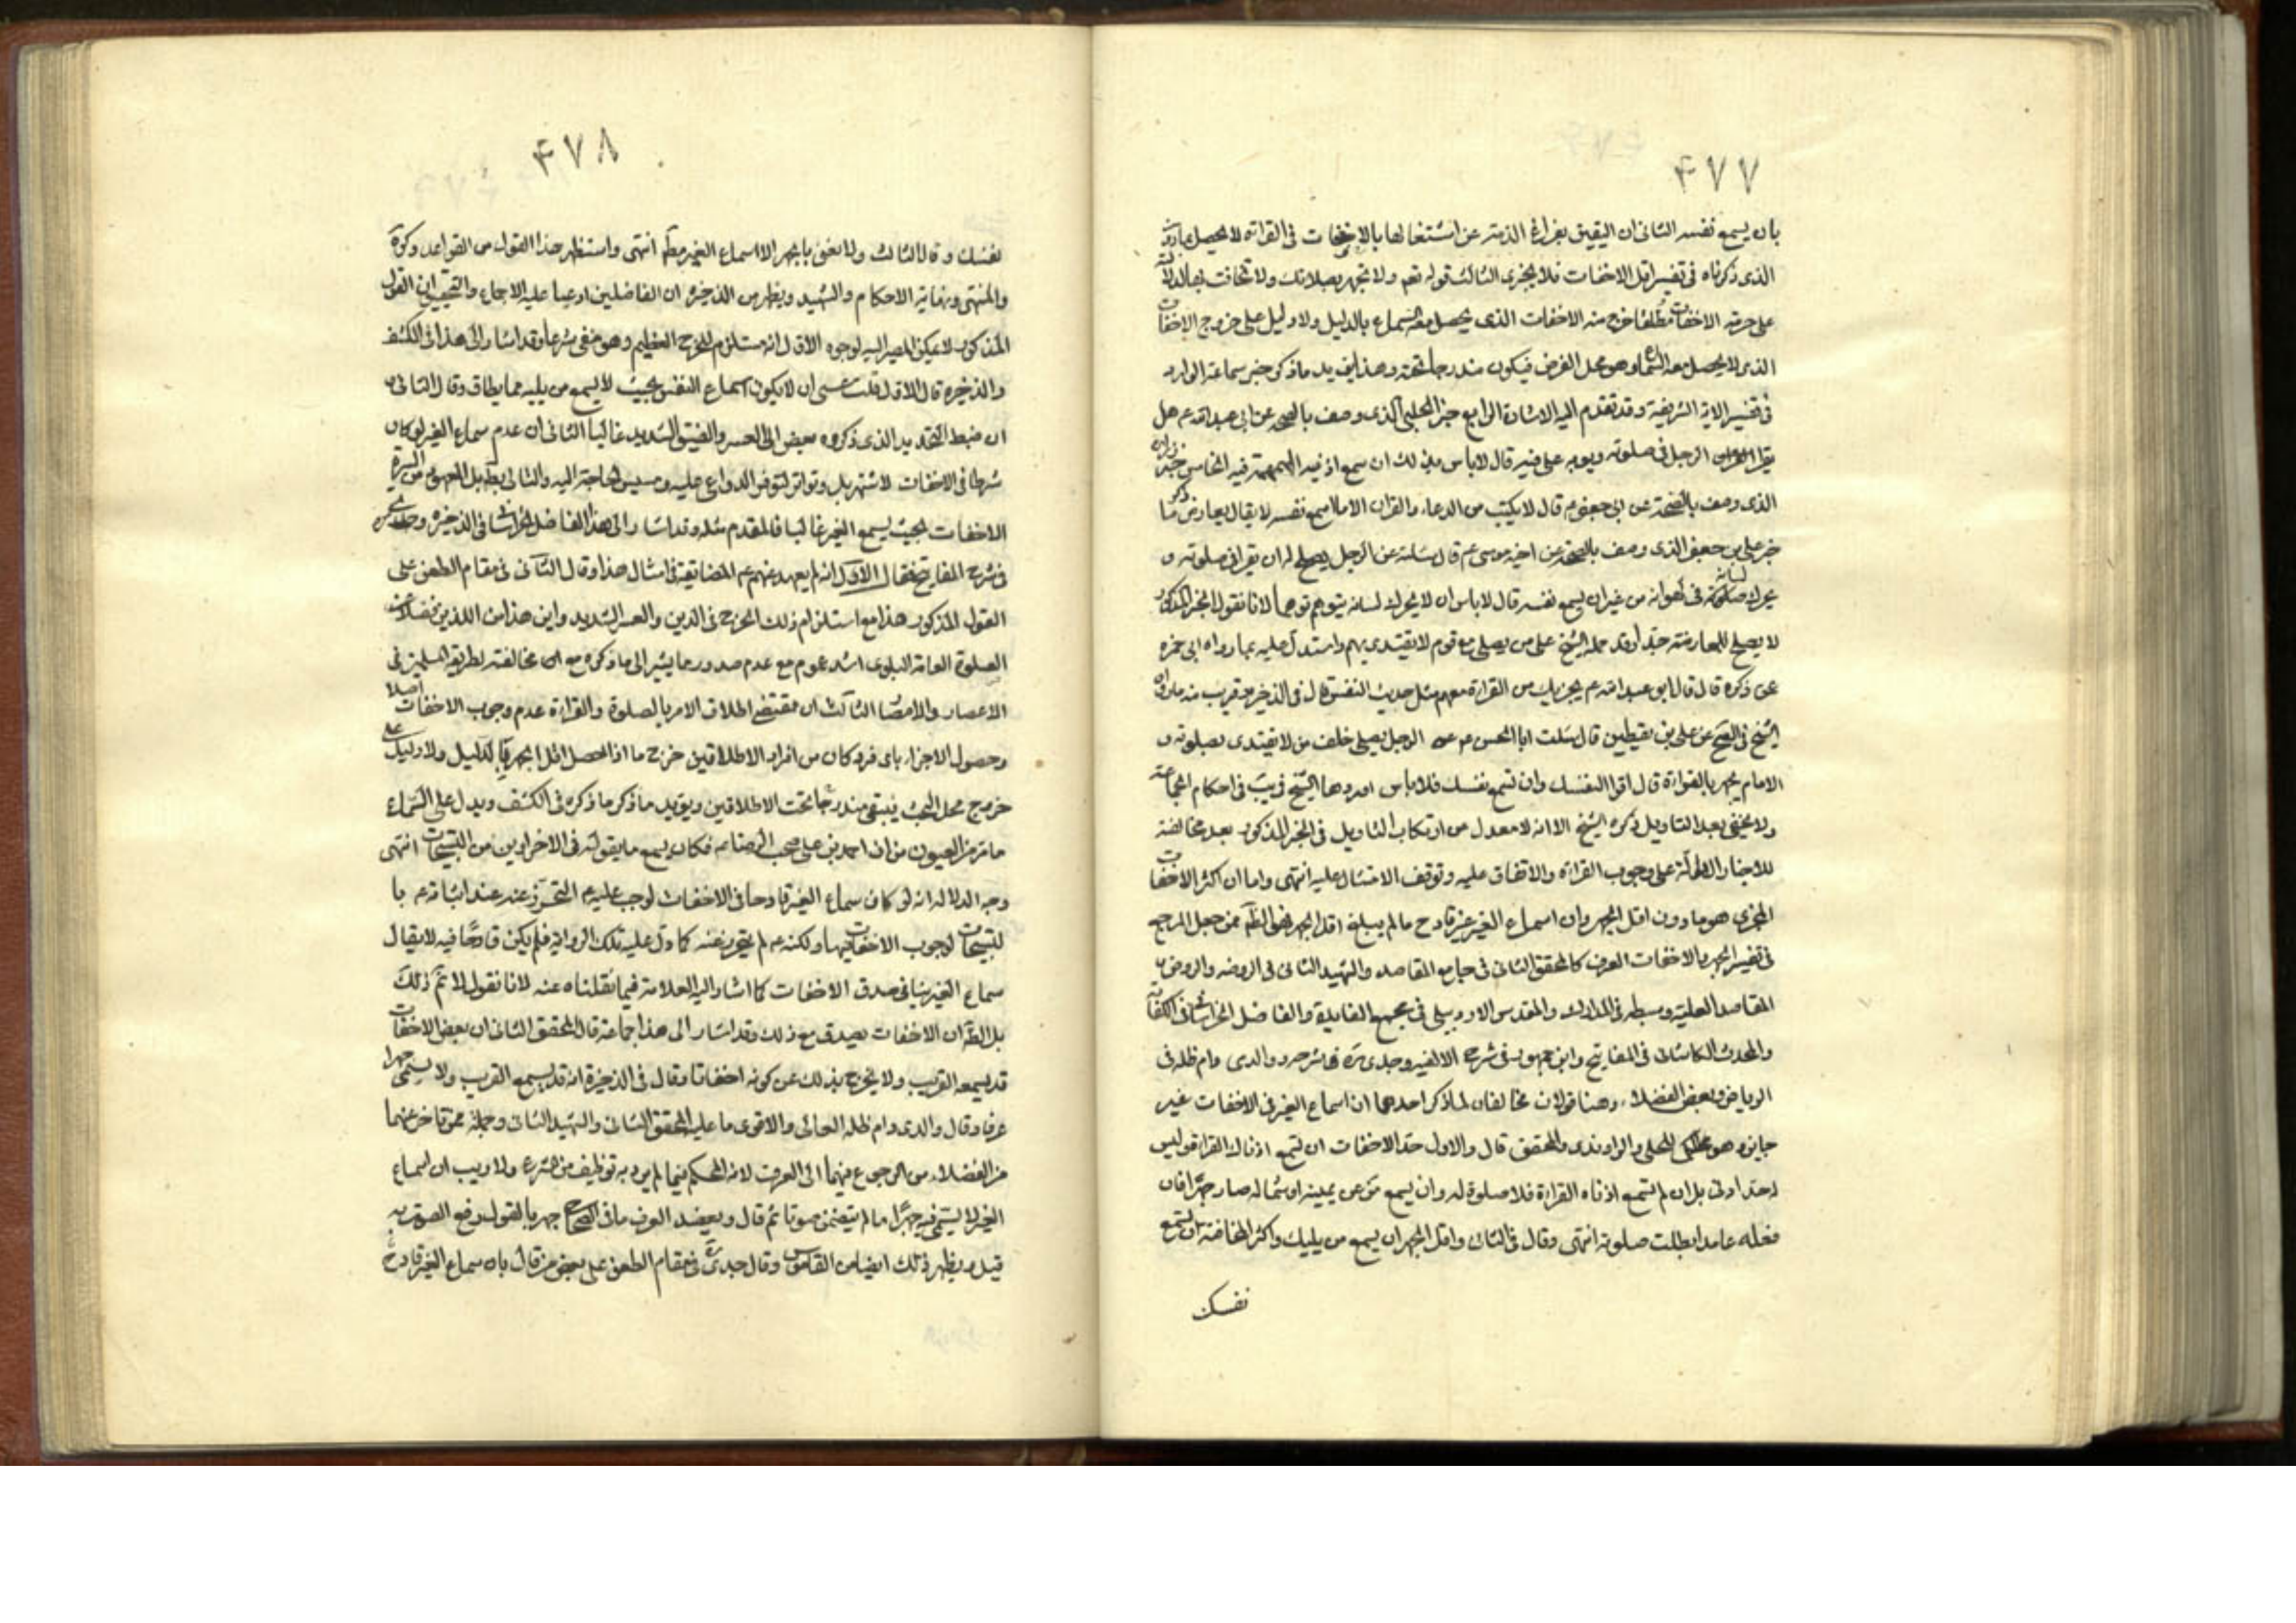 ۴۷۷
بان يسمع نفسه الثانى ان اليقين بفراغ الذمة عن اشتغالها بالاخفات فى القرائة لا يحصل
الذى ذكرناه فى تفسير اقل الاخفات فلا يجزى الثالث قوله تعم ولا تجهر بصلاتك ولا تخافت بها
على حرمة الاخفات مطلقا خرج منه الاخفات الذى يحصل معه السماع بالدليل ولا دليل على خروج الاخفات
الذى لا يحصل معه السماع وهو محل الفرض فيكون مندرجا تحته وهذا يؤيد ما ذكر خبر سماعة الوارد
فى تفسير الاية الشريفة وقد تقدم اليه الاشارة الرابع خبر الحلبى الذى وصف بالصحة عن ابى عبد الله عم هل
يقرا الرجل فى صلوته وثوبه على فيه قال لا باس بذلك ان سمع اذنيه الهمهمة فيه الخامس خبر زرارة
الذى وصف بالصحة عن ابى جعفر عم قال لا يكتب من الدعاء والقران الا ما اسمع نفسه لا يقال يعارض ما ذكر
خبر على بن جعفر الذى وصف بالصحة عن اخيه موسى عم قال سئلته عن الرجل يصلح له ان يقرا فى صلوته و
يحرك لسانه فى لهواته من غير ان يسمع نفسه قال لا باس ان لا يحرك لسانه يتوهم توهما لانا نقول الخبر المذكور
لا يصلح للمعارضة جدا وقد حمله الشيخ على من يصلى مع قوم لا يقتدى بهم واستدل عليه بما رواه ابى حمزه
عن ذكره قال قال ابو عبد الله عم يجزيك من القراءة معهم مثل حديث النفس قال فى الذخيره وقريب منه ما رواه
الشيخ فى الصحيح عن على بن يقطين قال سئلت ابا الحسن عم عن الرجل يصلى خلف من لا يقتدى بصلوته و
الامام يجهر بالقراءة قال اقرا لنفسك وان لم تسمع نفسك فلا باس اوردهما الشيخ فى يب فى احكام الجماعة
ولا يخفى بعد التاويل ذكره الشيخ الا انه لا معدل من ارتكاب التاويل فى الخبر المذكور بعد مخالفته
للاخبار الدالة على وجوب القراءة والاتفاق عليه وتوقف الامتثال عليه انتهى واما ان اكثر الاخفات
المجزى هو ما دون اقل الجهر وان اسماع الغير غير قادح ما لم يبلغ اقل الجهر فهو الظم ممن جعل المرجع
فى تفسير الجهر والاخفات العرف كالمحقق الثانى فى جامع المقاصد والشهيد الثانى فى الروضه والروض و
المقاصد العلية وسبطه فى المدارك والمقدس الاردبيلى فى مجمع الفايدة والفاضل الخراسانى فى الكفاية
والمحدث الكاشانى فى المفاتيح وابن جمهور فى شرح الالفيه وجدى ره فى شرحه ووالدى دام ظله فى
الرياض وبعض الفضلاء وهنا قولان مخالفان لما ذكر احدهما ان اسماع الغير فى الاخفات غير
جايز وهو للحلى والراوندى والمحقق قال والاول حد الاخفات ان تسمع اذناك القراءة وليس
له حد ادنى بل ان لم تسمع اذناه القراءة فلا صلوة له وان يسمع من عن يمينه او شماله صار جهرا فان
فعله عامدا بطلت صلوته انتهى وقال فى الثانى واقل الجهر ان يسمع من يليك واكثر المخافتة ان تسمع
نفسك
۴۷۸
نفسك وقال الثالث ولا نعنى بالجهر الا اسماع الغير مطم انتهى واستظهر هذا القول من القواعد وكره
والمنتهى ونهاية الاحكام والشهيد ويظهر من الذخيره ان الفاضلين ادعيا عليه الاجماع والتحقيق ان القول
المذكور لا يمكن المصير اليه لوجوه الاول انه مستلزم للحرج العظيم وهو منفى شرعا وقد اشار الى هذا فى الكشف
والذخيره قال الاول قلت عسى ان لا يكون اسماع النفس بحيث لا يسمع من يليه مما يطاق وقال الثانى
ان ضبط التحديد الذى ذكروه مفض الى العسر والضيق الشديد غالبا الثانى ان عدم سماع الغير لو كان
شرطا فى الاخفات لاشتهر بل وتواتر لتوفر الدواعى عليه ومسيس الحاجة اليه والتالى بط بل المعهود من السيرة
الاخفات بحيث يسمع الغير غالبا فالمقدم مثله وقد اشار الى هذا الفاضل الخراسانى فى الذخيره وجدى ره
فى شرح المفاتيح فقال الاول انه لم يعهد عنهم عم المضايقة فى امثال هذا وقال الثانى فى مقام الطعن على
القول المذكور هذا مع استلزام ذلك الحرج فى الدين والعسر الشديد واين هذا من اللذين
الصلوة العامة البلوى اشد عموم مع عدم صدور ما يشير الى ما ذكروه مع ان مخالفته لطريقة المسلمين فى
الاعصار والامصار الثالث ان مقتضى اطلاق الامر بالصلوة والقراءة عدم وجوب الاخفات اصلا
وحصول الاجزاء باى فرد كان من افراد الاطلاقين خرج ما اذا حصل اقل الجهر بالدليل ولا دليل على
خروج محل البحث فيبقى مندرجا تحت الاطلاقين ويؤيد ما ذكر ما ذكره فى الكشف ويدل على السماع
ما مر من العيون من ان احمد بن على صحب الرضا عم فكان يسمع ما يقوله فى الاخراوين من التسبيحات انتهى
وجه الدلاله انه لو كان سماع الغير قادحا فى الاخفات لوجب عليه عم التحرز عنه عند اتيانه عم با
لتسبيحات لوجوب الاخفات فيها ولكنه عم لم يتحرز عنه كما دل عليه تلك الرواية فلم يكن قادحا فيه لا يقال
سماع الغير ينافى صدق الاخفات كما اشار اليه العلامة فيما نقلناه عنه لانا نقول لا نم ذلك
بل الظم ان الاخفات يصدق مع ذلك وقد اشار الى هذا جماعة قال المحقق الثانى ان بعض الاخفات
قد يسمعه القريب ولا يخرج بذلك عن كونه اخفاتا وقال فى الذخيرة انه قد يسمع القريب ولا يسمى جهرا
عرفا وقال والدى دام ظله العالى والاقوى ما عليه المحقق الثانى والشهيد الثانى وجملة ممن تاخر عنهما
من الفضلاء من الرجوع فيهما الى العرف لانه المحكم فيما لم يرد به توظيف من الشرع ولا ريب ان اسماع
الغير لا يسمى فيه جهرا ما لم يتضمن صوتا ثم قال ويعضد العرف ما فى الصحاح جهر بالقول رفع الصوت به
قيل ويظهر ذلك ايضا من القاموس وقال جدى ره فى مقام الطعن على بعض من قال بان سماع الغير قادح